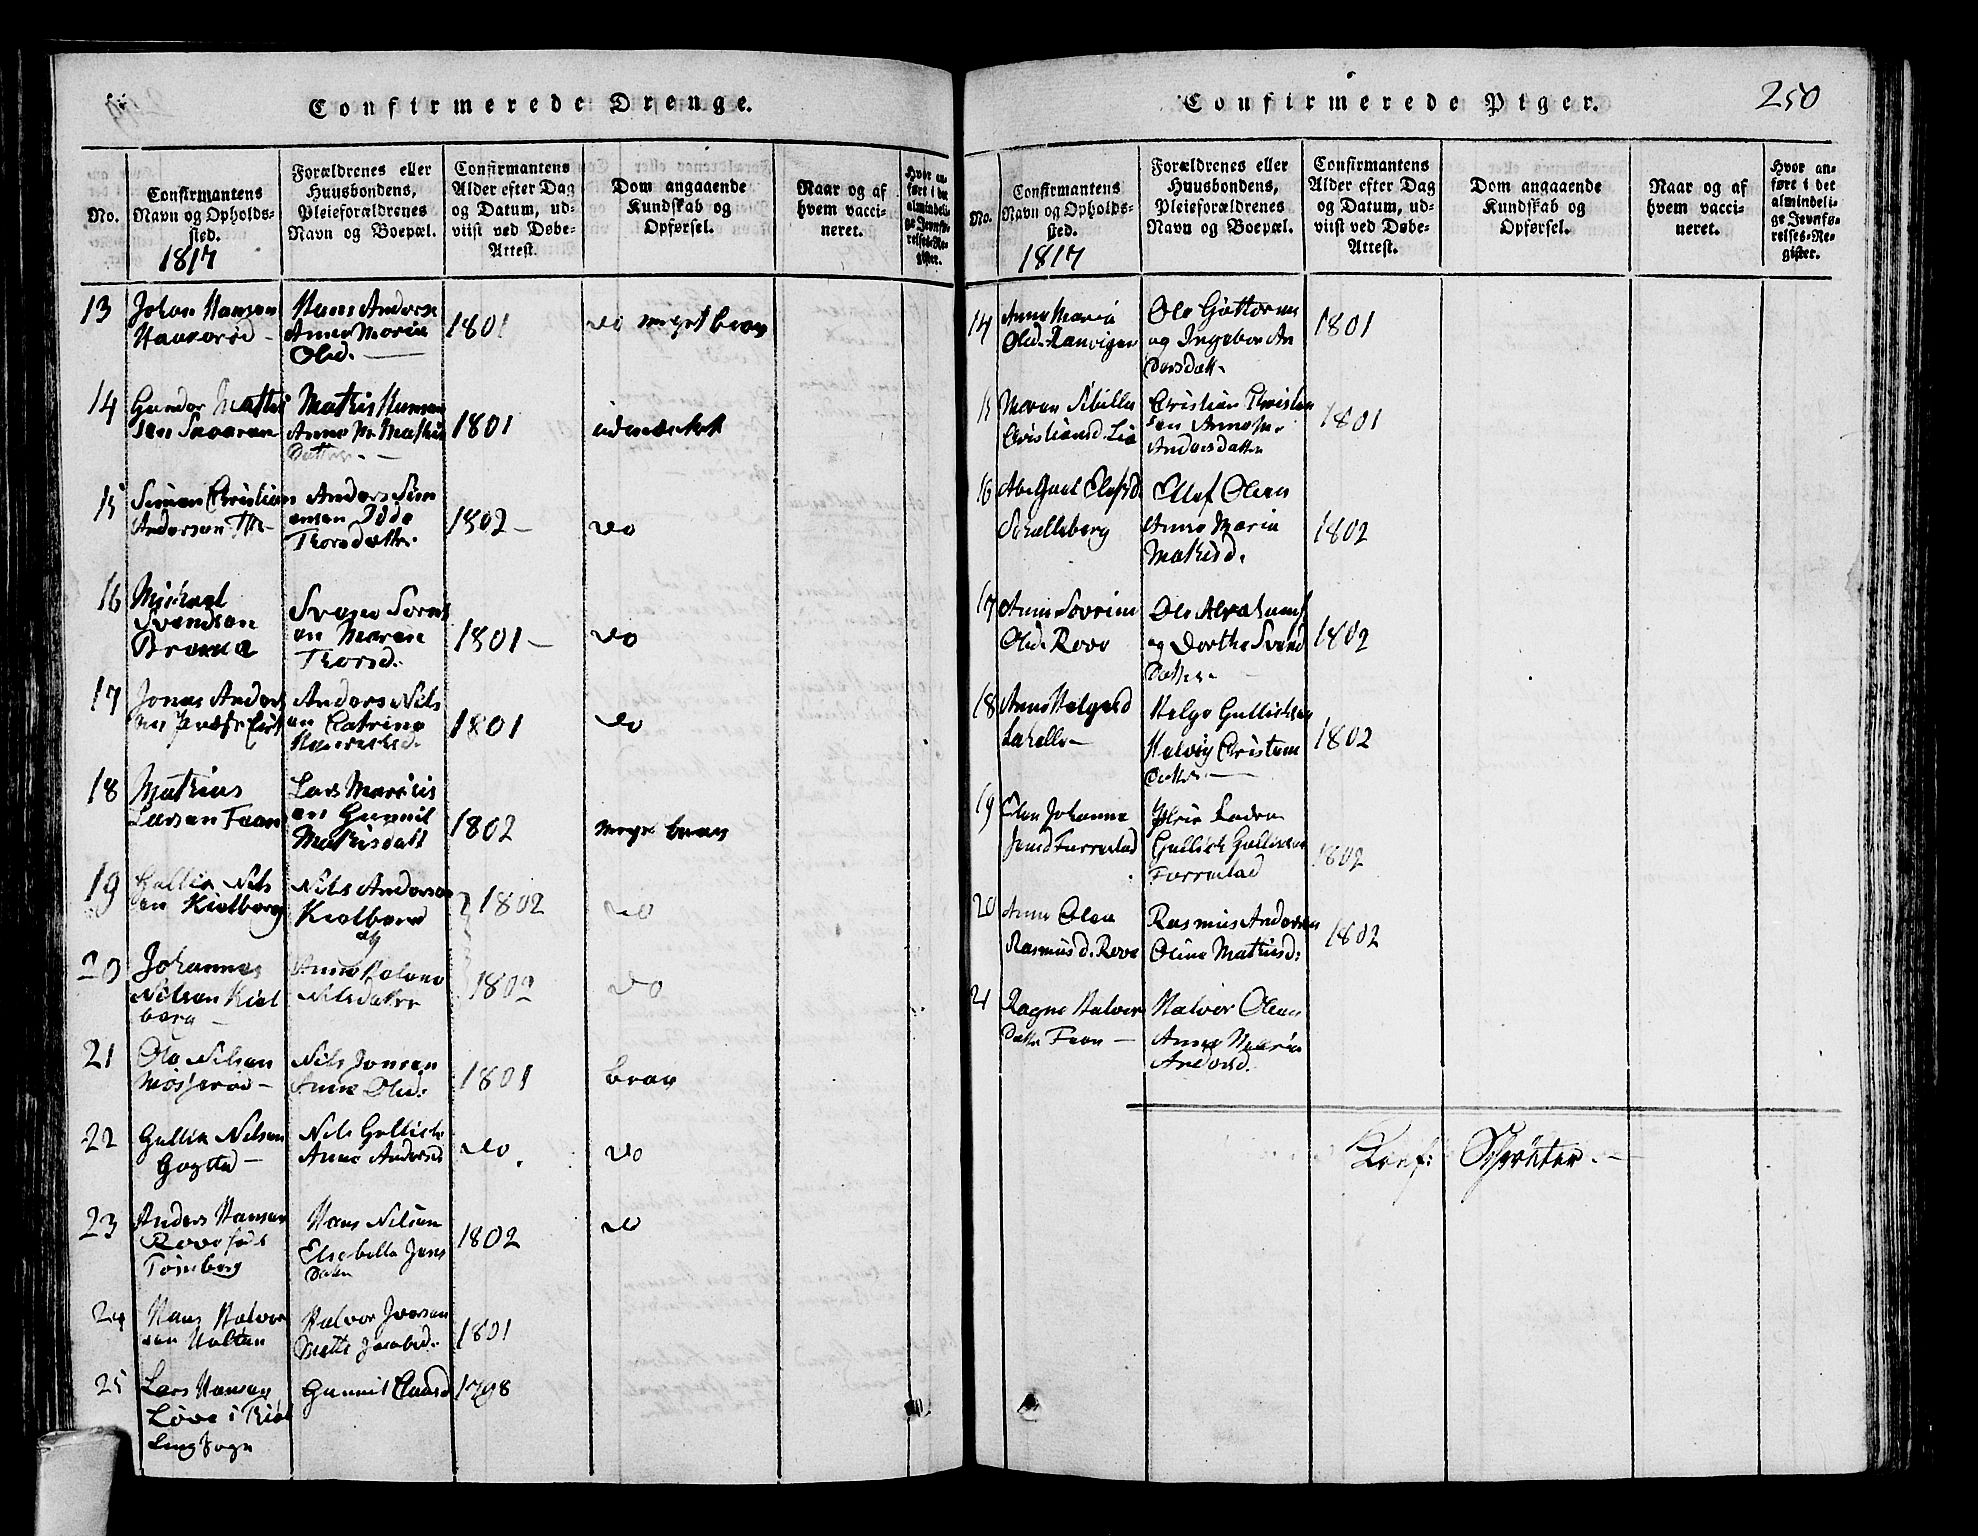 Confirmerede Drenge.
No.
Confirmantens
Navn og Opholds-
sted.
1817
Forældrenes eller
Huusbondens,
Pleieforældrenes
Navn og Boepæl.
Confirmantens
Alder efter Dag
og Datum, ud-
viist ved Døbe-
Attest.
Dom angaaende
Kundskab og
Opførsel.
Naar og af
hvem vacci-
neret.
Hvor an-
ført i det
almindeli-
ge Jevnfø-
relses-Re-
gister.
13
Johan Hansen
Hans Anders
Anne Maria
Olsd.
1801
do meget brav
14
Gunder Mathi
sen
Mathis Hansen
Anne M. Mathis
Datter.
1801
udmærket
15
Simen Christian
Andersen
Anders Sim
ensen
Thorsdatter.
1802
do
16
Michael
Svendsen
Svend Sorens
en Maren
Thorsd.
1801
do
17
Jonas Anders
Anders Nils
en Catrine
1801
do
18
Mathias
Larsen Faan
Lars
en Gunnil
Mathisdatt
1802
meget brav
19
Gullik Nils
en Kiølberg
Nils Andersen
Kiølberg
og
1802
do
20
Johannes
Nilsen Kiøl
berg
Anne Helene
Nilsdatter
1802
do
21
Ole Nilsen
Nils Jonsen
Anne Olsd.
1801
brav
22
Gullik Nilsen
Gogstad
Nils Gullichs
Anne Andersd
do
do
23
Anders Hansen
Rove
Tønsberg
Hans Nilsen
Elsebella Jens
Datter
1802
do
24
Hans Halvor
sen Holtan
Halvor Iversen
Mette Jacobsd.
1801
25
Lars Hansen
Løve i Tiøl
ling Sogn
Gunnil Clausd
1798
250
Confirmerede Piger.
No.
Confirmantens
Navn og Opholds-
sted.
1817
Forældrenes eller
Huusbondens,
Pleieforældrenes
Navn og Boepæl.
Confirmantens
Alder efter Dag
og Datum, ud-
viist ved Døbe-
Attest.
Dom angaaende
Kundskab og
Opførsel.
Naar og af
hvem vacci-
neret.
Hvor an-
ført i det
almindeli-
ge Jevnfø-
relses-Re-
gister.
14
Anne Maria
Olsd. Ranvigen
Ole Guttormsen
og Ingebor An
dersdatt.
1801
15
Maren Sibille
Cristiansd. Lia
Christian Christen
sen Anne M.
Andersdatter
1801
16
Abelgael Olefsd.
Schallsberg
Ellef Olsen
Anne Maria
Mathisd.
1802
17
Anne Sovrine
Olsd. Rove
Ole Abrahams
og Dorthe Svend
Datter.
1802
18
Anne Helgesd
Helge Gullichsen
Helvig Cristens
Datter
1802
19
Elen Johanne
Jensd Furrustad
Gullich Gullicksen
Furrustad
1802
20
Anne Olea
Rasmusd. Rove
Rasmus Andersen
Oline Mathisd.
1802
21
Ragne Halvor
Datter Faan
Halvor Olsen
Anne Maria
Andersd.
Conf: Schrøter.